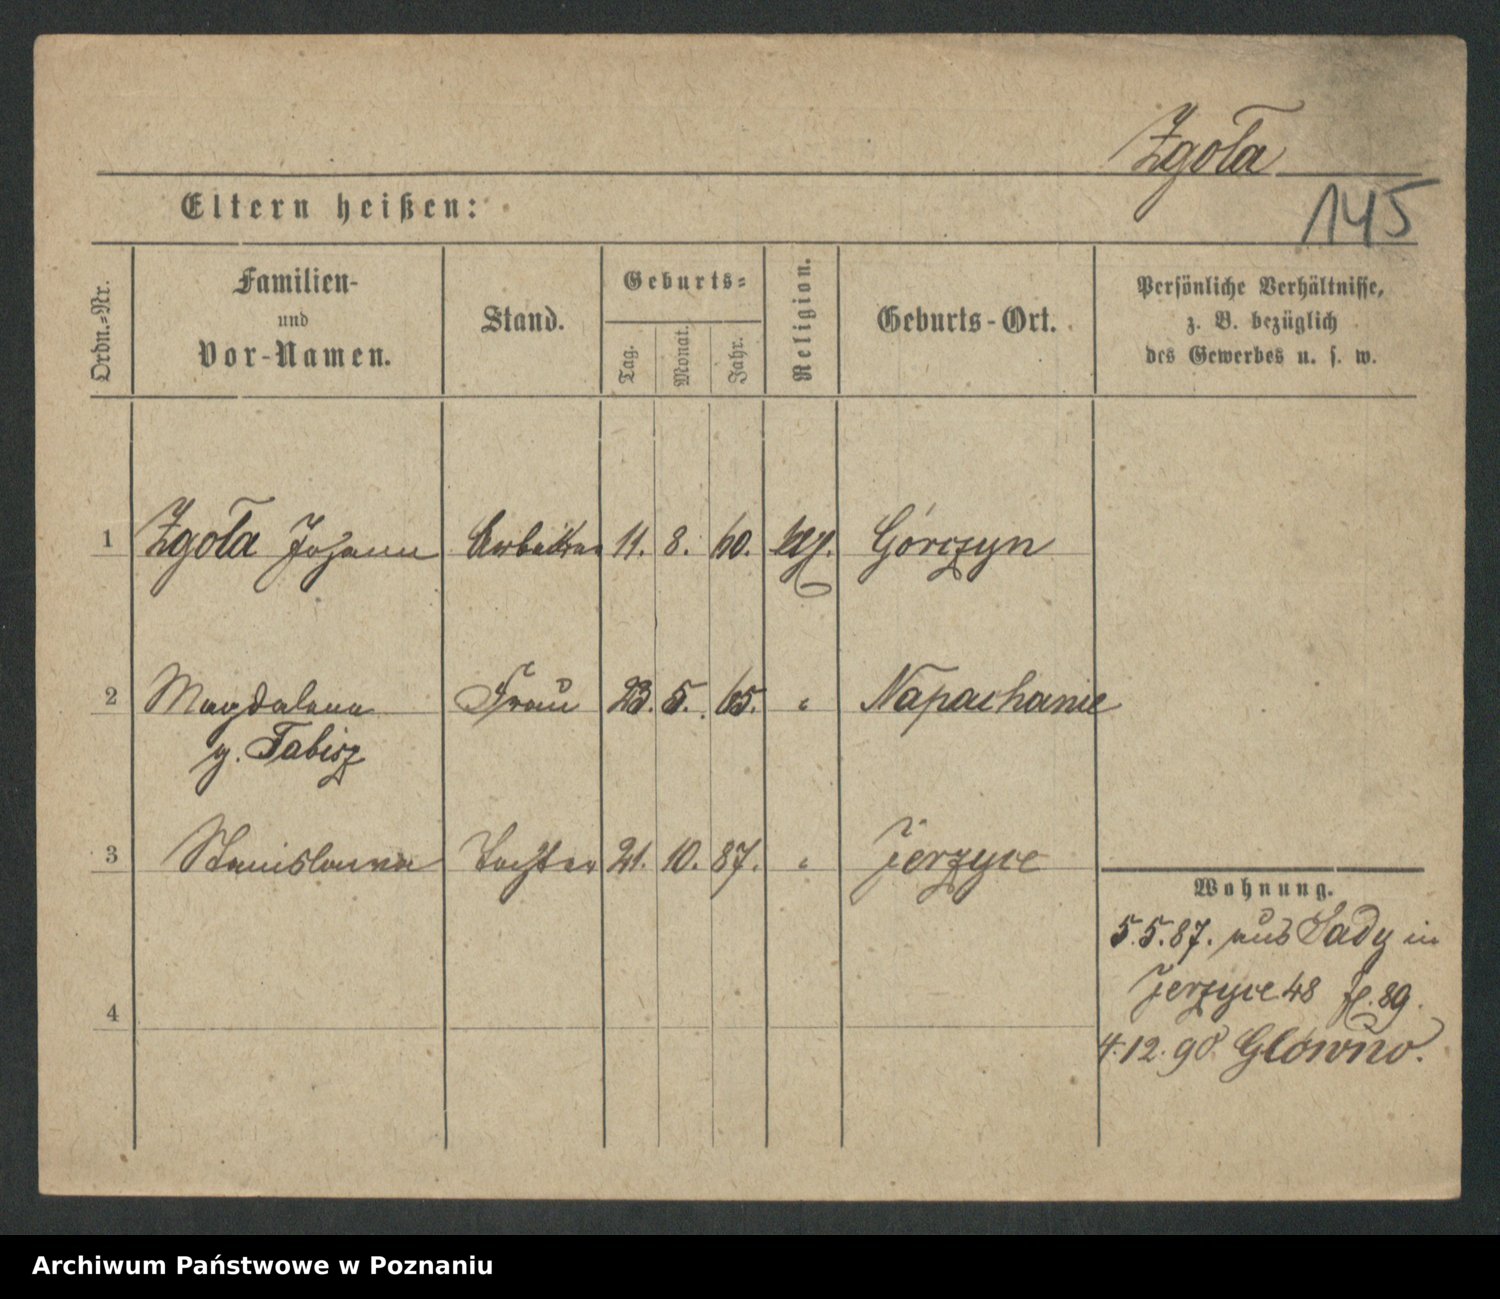 Zgoła
145
Eltern heißen:
Ordn.-Nr.
Familien-
und
Vor-Namen.
Stand.
Geburts-
Tag.
Monat.
Jahr.
Religion.
Geburts-Ort.
Persönliche Verhältnisse,
z. B. bezüglich
des Gewerbes u. s. w.
1 Zgoła Johann Arbeiter 11. 8. 60. Górczyn
2 Magdalena Frau 23. 5. 65. " Napachanie
g. Tabisz
3 Stanislawa Tochter 21. 10. 87. " Jerzyce
Wohnung.
5.5.87. aus Sady in
Jerzyce 48 89.
4
4.12.90 Główno.
Archiwum Państwowe w Poznaniu